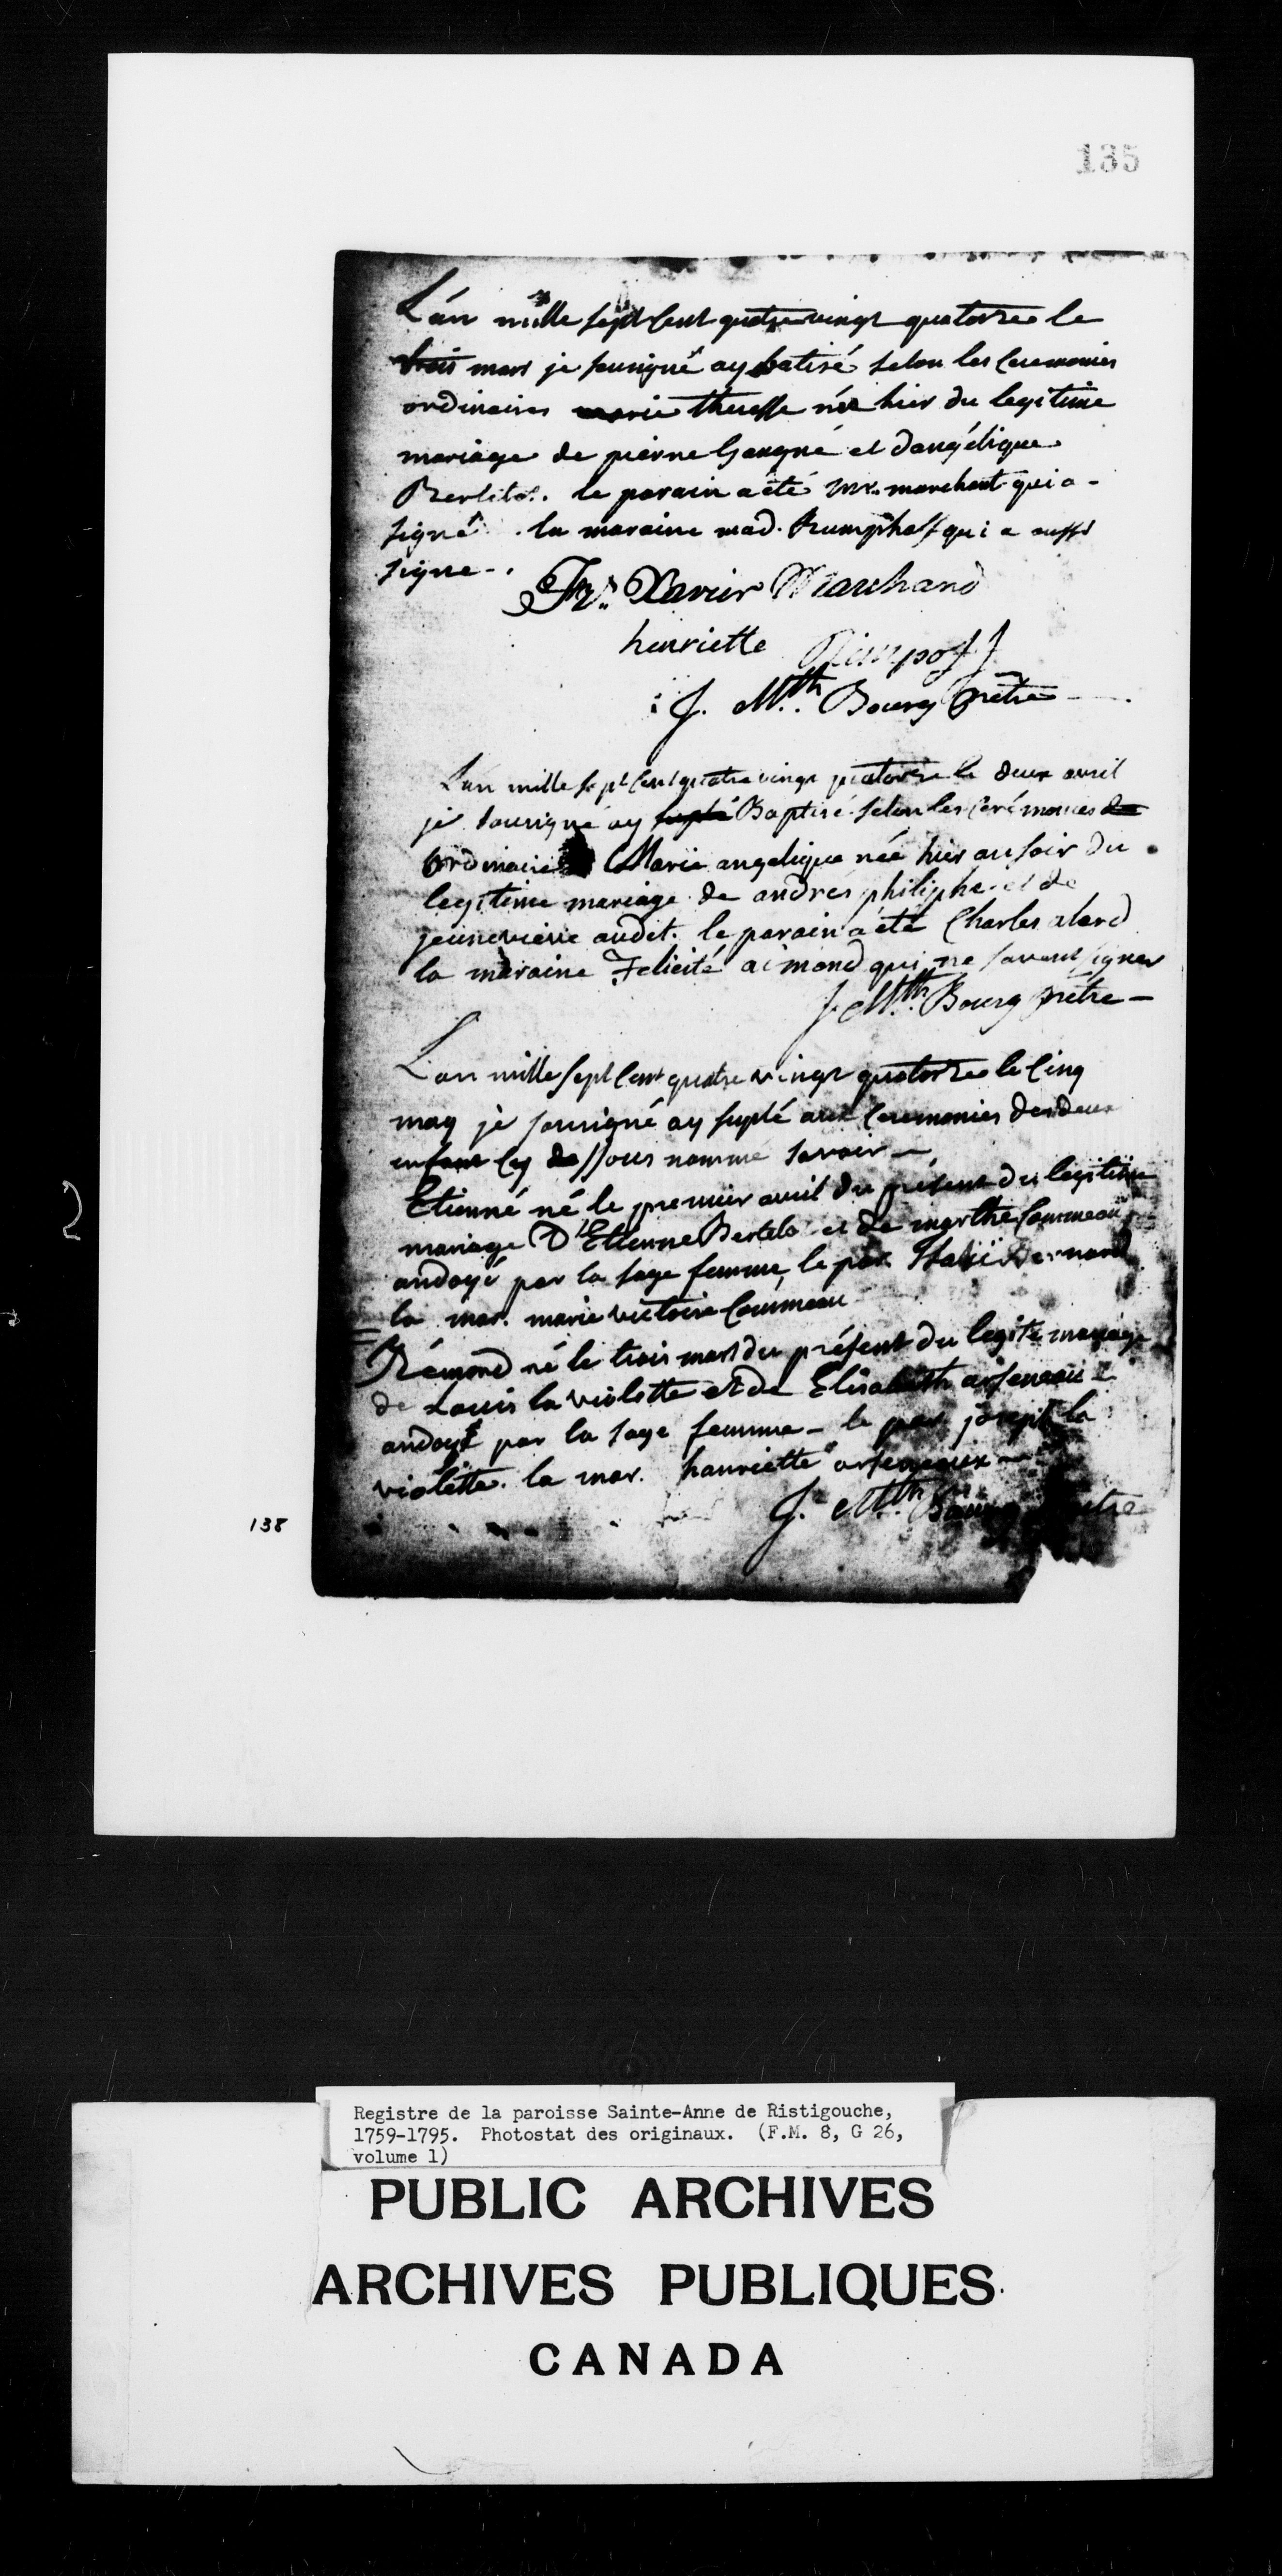 135
L'an mille sept cent quatre vingt quatorze le
trois mars je sousigné ay batisé selon les ceremonies
ordinaires marie theresse née hier du legitime
mariage de pierre et dangélique
le parain a été mr. marchant qui a
signé. la maraine mad. Rumphoff qui a aussi
signe.
Fr. Xavier Marchand
henriette Rimpoff
J. Mth. Bourg prêtre
L'an mille sept cent quatre vingt quatorze le deux avril
je sousigné ay suplé Baptisé selon les cerémonies de
ordinaires Marie angelique née hier au soir du
legitime mariage de andrés philiphe et de
jeunevieve audet. le parain a été Charles alard
la maraine Felicité aimond qui ne savent signer
J. Mth. Bourg prêtre
L'an mille sept cent quatre vingt quatorze le cinq
may je sousigné ay suplé aux ceremonies des deux
enfant cy dessous nommé savoir
Etienné né le premier avril du présent du legitime
mariage D'Etienne Bertelo et de marthe Commeau
andoyé par la sage femme, le par. Bernard
la mar. marie victoire Commeau
Rémond né le trois mars du présent du legite mariage
de Louis la violette et de Elisabeth arseneau
andoyé par la sage femme le par. joseph la
violette. la mar. hanriette arseneaux
J. Mth. Bourg prêtre
138
Registre de la paroisse Sainte-Anne de Ristigouche,
1759-1795. Photostat des originaux. (F.M. 8, G 26,
volume 1)
PUBLIC ARCHIVES
ARCHIVES PUBLIQUES
CANADA